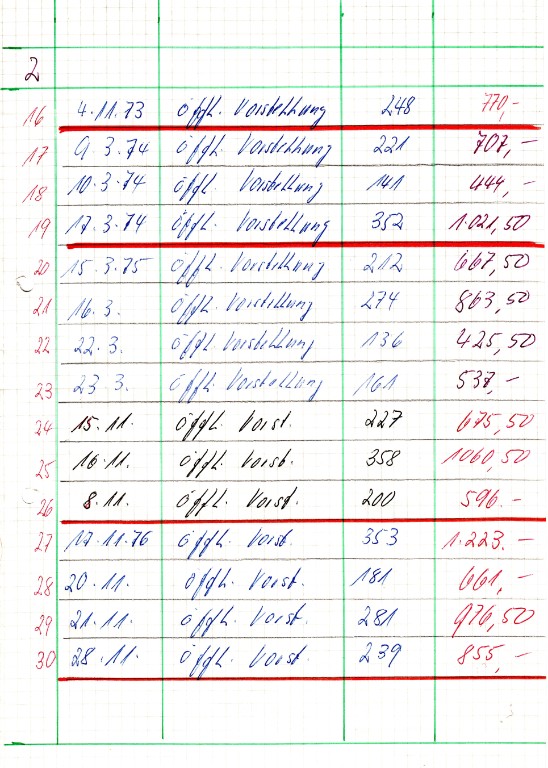 2
16 4.11.73 öffl. Vorstellung 248 770,-
17 9.3.74 öffl. Vorstellung 221 707,-
18 10.3.74 öffl. Vorstellung 141 444,-
19 17.3.74 öffl. Vorstellung 352 1.021,50
20 15.3.75 öffl. Vorstellung 212 667,50
21 16.3. öffl. Vorstellung 274 863,50
22 22.3. öffl. Vorstellung 136 425,50
23 23.3. öffl. Vorstellung 161 537,-
24 15.11. öffl. Vorst. 227 675,50
25 16.11. öffl. Vorst. 358 1060,50
26 8.11. öffl. Vorst. 200 596.-
27 17.11.76 öffl. Vorst. 353 1.223.-
28 20.11. öffl. Vorst. 181 661,-
29 21.11. öffl. Vorst. 281 976,50
30 28.11. öffl. Vorst. 239 855,-